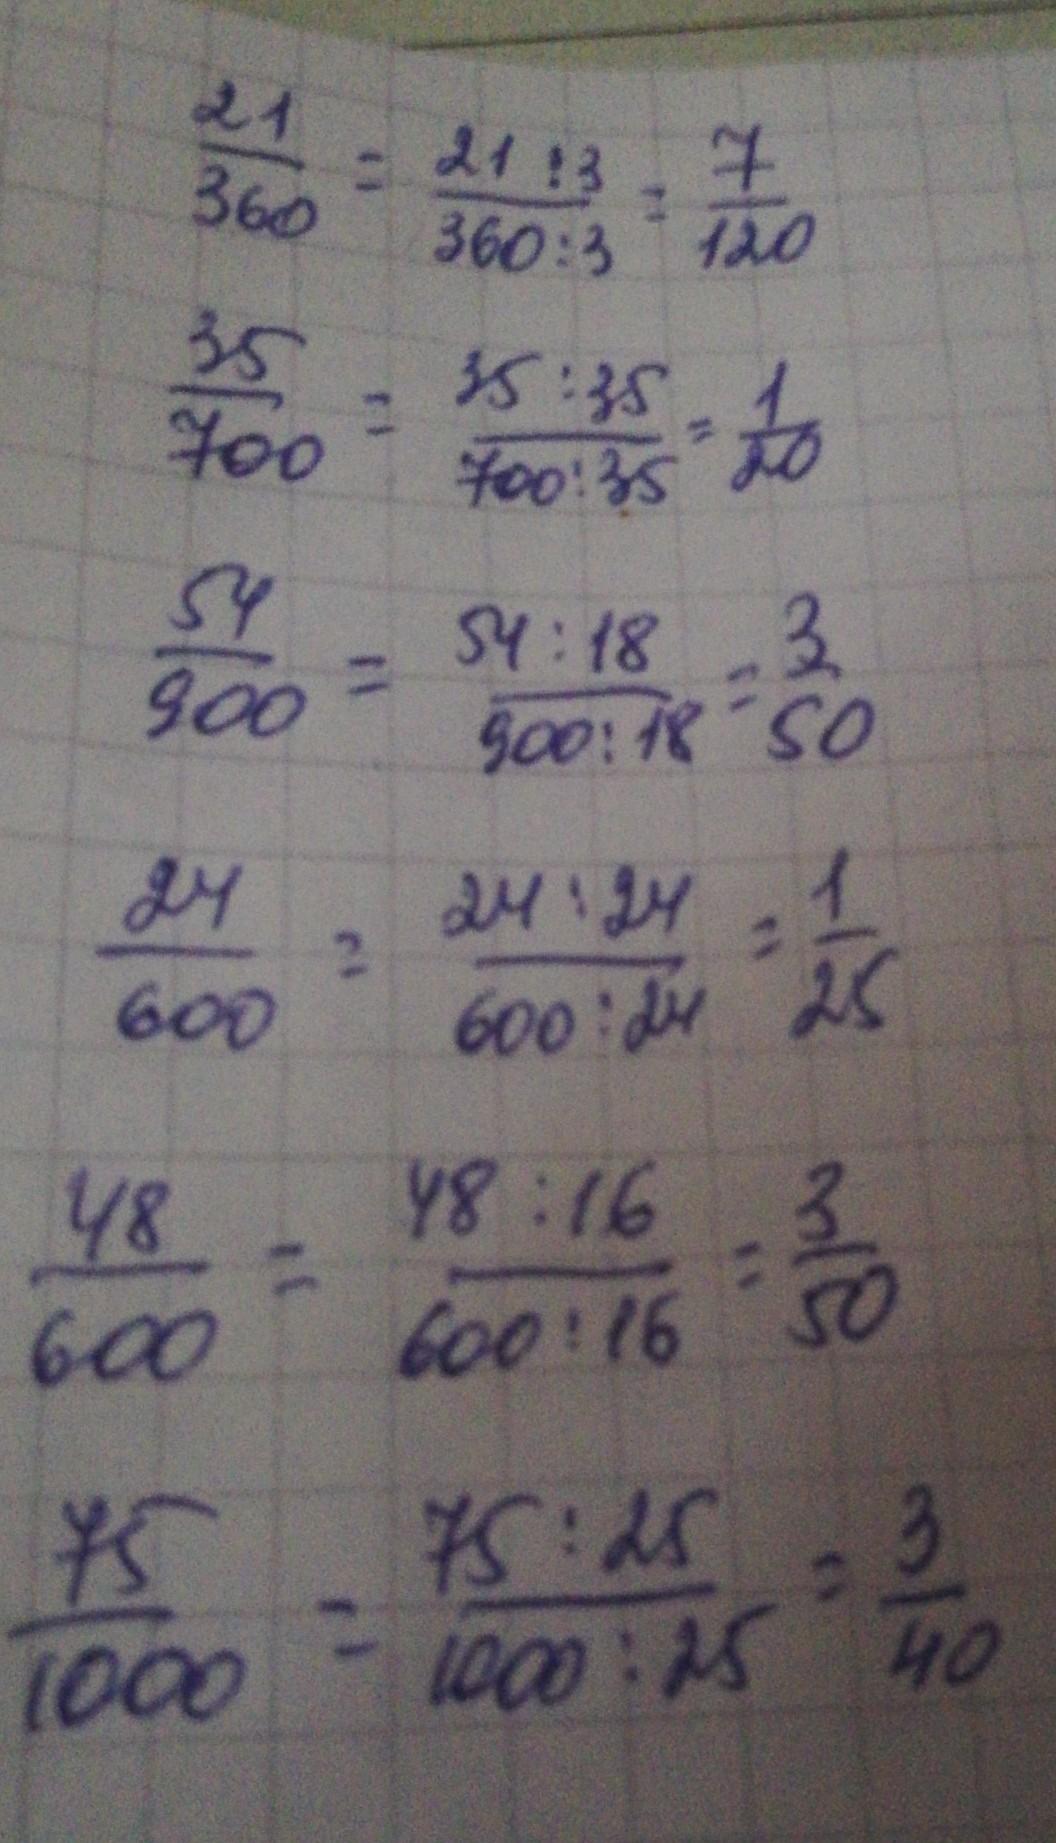 21/360 = 21:3/360:3 = 7/120
35/700 = 35:35/700:35 = 1/20
54/900 = 54:18/900:18 = 3/50
24/600 = 24:24/600:24 = 1/25
48/600 = 48:16/600:16 = 3/50
75/1000 = 75:25/1000:25 = 3/40